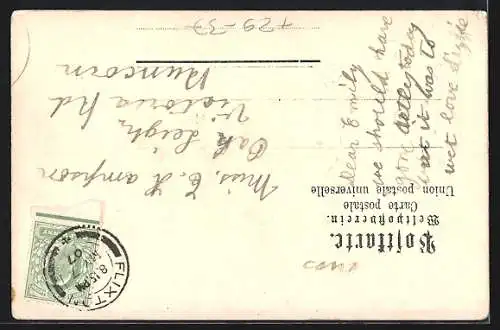 Postkarte.
Weltpostverein.
Carte postale
Union postale universelle
Miss. E. Hampson
Oak Leigh
Victoria Rd
Runcorn
dear Emily
we should have
gone today
but it was to
wet love
FLIXTON
8.15 PM
07
729-37